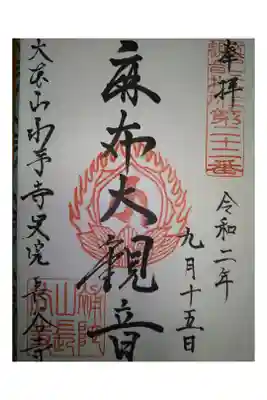 奉拝
第二十二番
令和二年
九月十五日
麻布大観音
大本山永平寺別院 長谷寺
補陀
山長